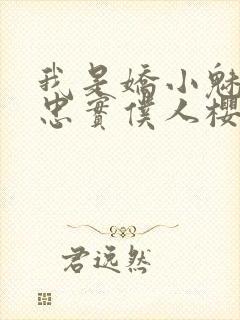 我是嬌小魅
忠實僕人櫻
君远然